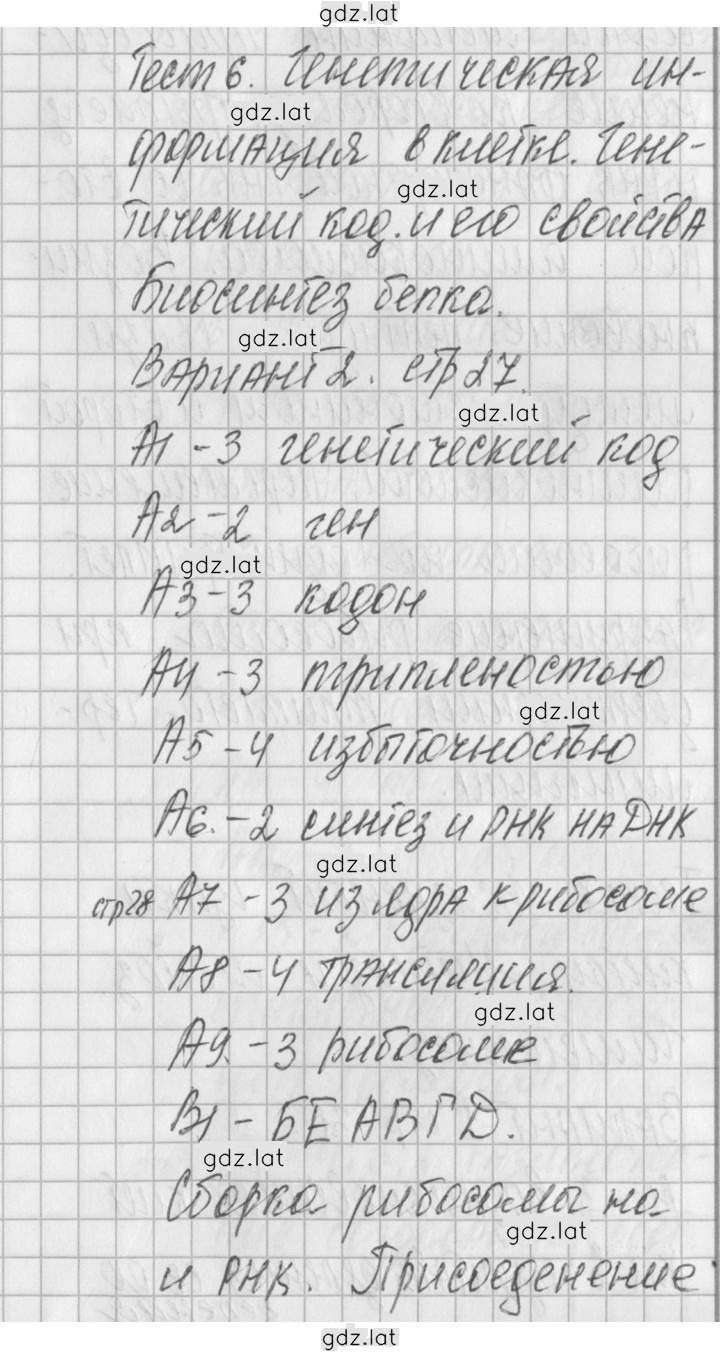 gdz.lat
Тест 6. Генетическая ин-
gdz.lat
формация в клетке. Гене-
gdz.lat
тический код. и его свойства
Биосинтез белка.
gdz.lat
Вариант 2. стр 27.
gdz.lat
А1 - 3 генетический код
А2 - 2 ген
gdz.lat
А3 - 3 кодон
А4 - 3 триплeностью
gdz.lat
А5 - 4 избыточностью
А6. - 2 синтез и РНК на ДНК
gdz.lat
стр 28 А7 - 3 из ядра к рибосоме
А8 - 4 трансляция.
gdz.lat
А9. - 3 рибосоме
В1 - БЕ АВГД.
gdz.lat
Сборка рибосомы на
gdz.lat
и РНК. Присоеденение
gdz.lat